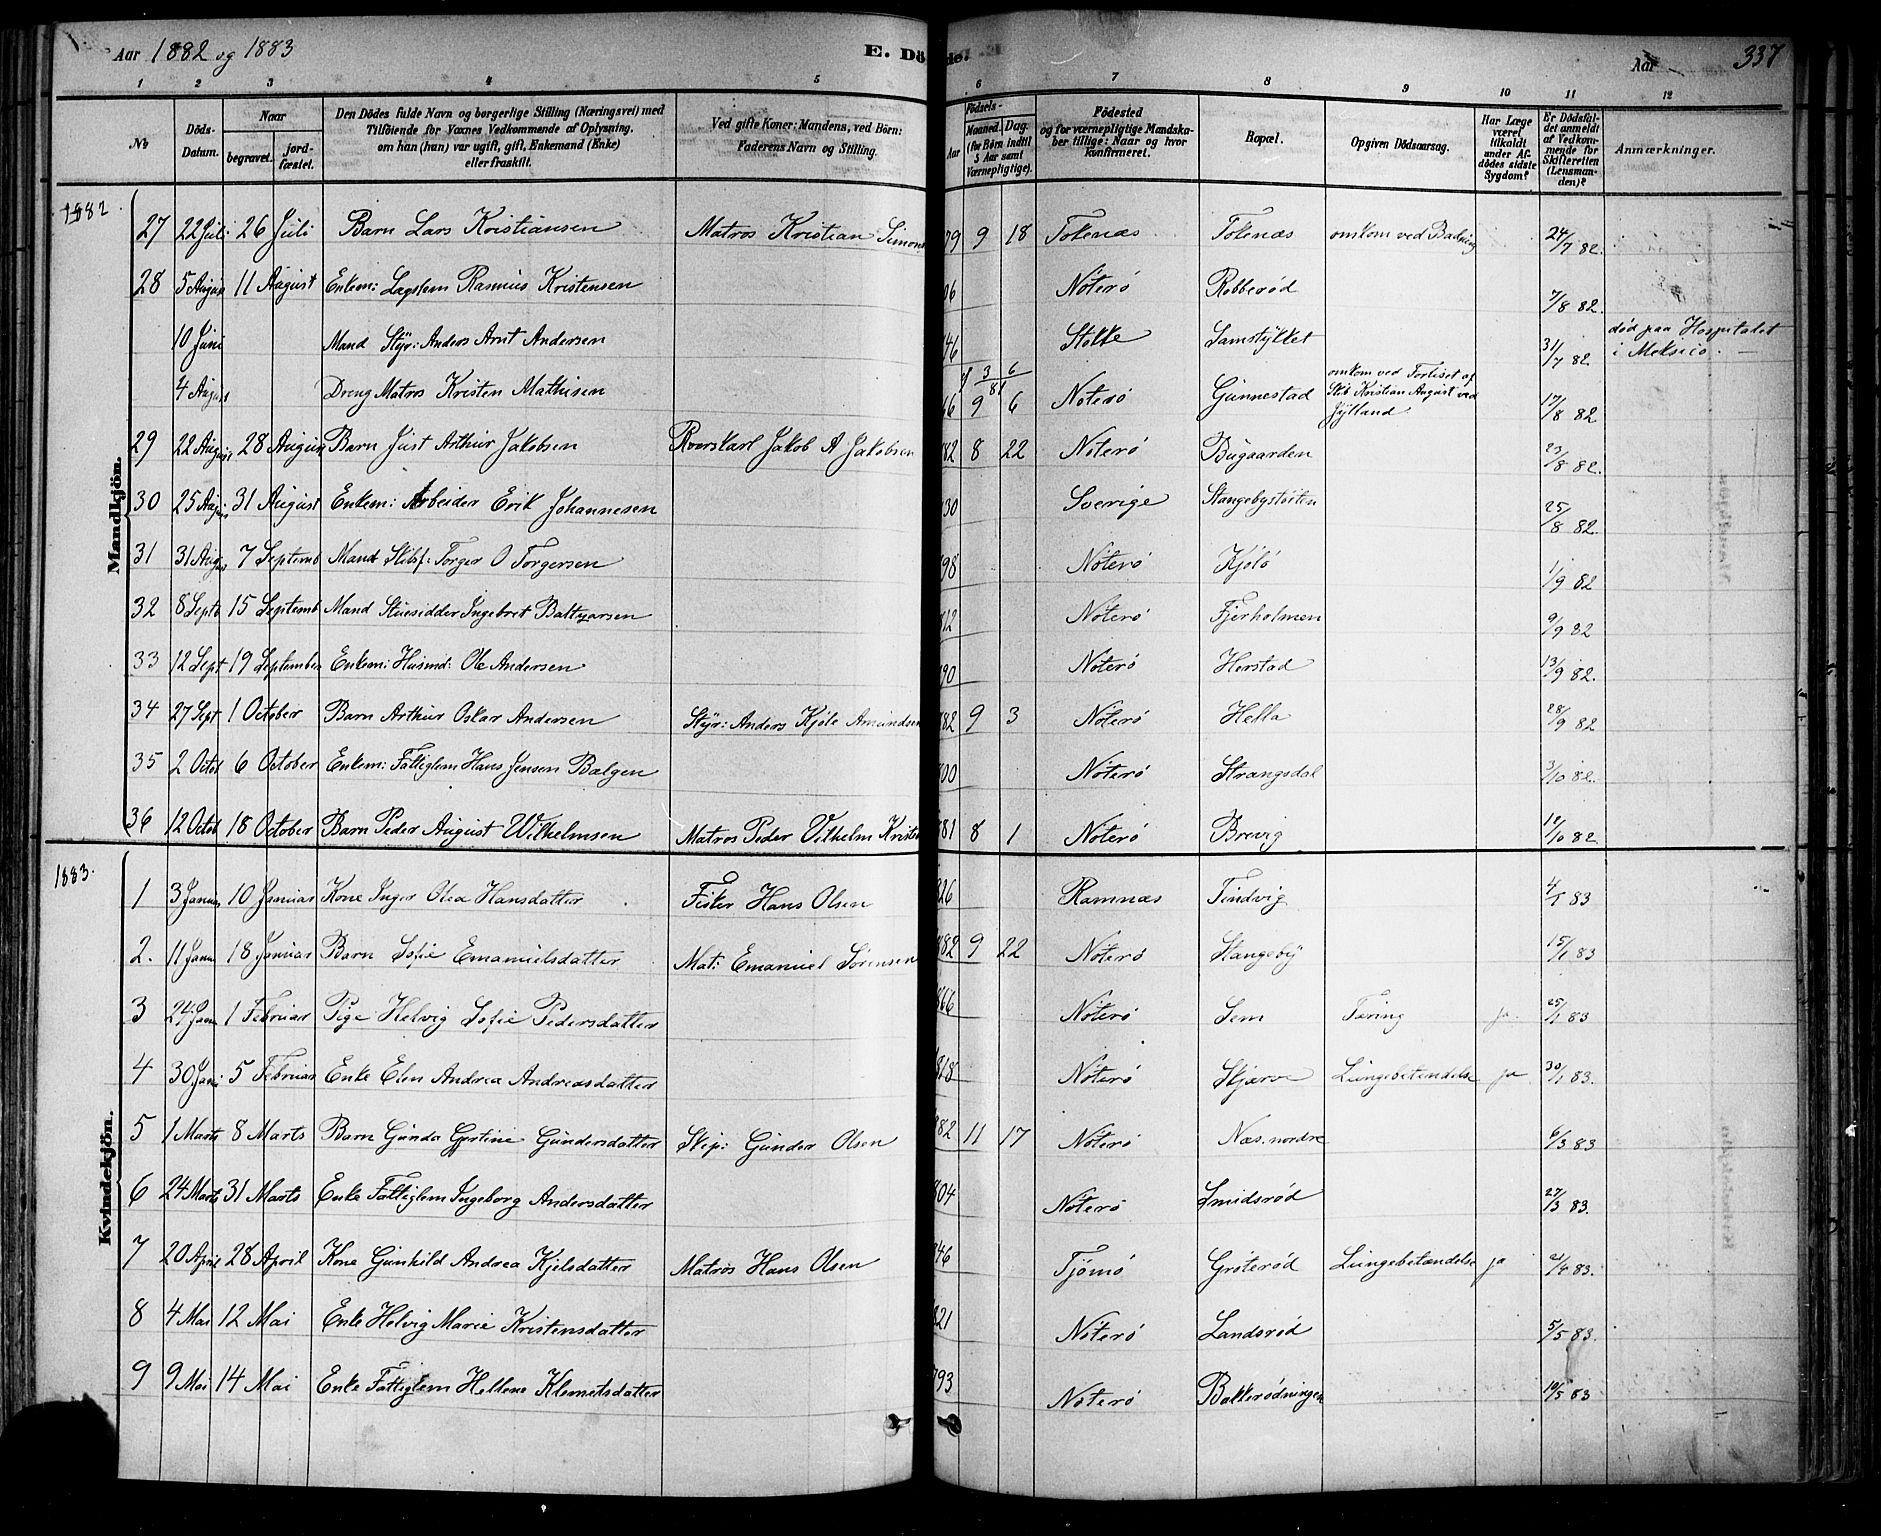 Aar 1882 og 1883 E. Döde. Aar 337
1 2 3 4 5 6 7 8 9 10 11 12
No
Döds-Datum.
Naar begravet. jordfæstet.
Den Dödes fulde Navn og borgerlige Stilling (Næringsvei) med Tilföiende for Voxnes Vedkommende af Oplysning, om han (hun) var ugift, gift, Enkemand (Enke) eller fraskilt.
Ved gifte Koner: Mandens, ved Börn: Faderens Navn og Stilling.
Födsels-
Aar Maaned. Dag. (for Börn indtil 5 Aar samt Værnepligtige).
Födested og for værnepligtige Mandskaber tillige: Naar og hvor konfirmeret.
Bopæl.
Opgiven Dödsaarsag.
Har Læge været tilkaldt under Afdödes sidste Sygdom?
Er Dödsfaldet anmeldt af Vedkommende for Skifteretten (Lensmanden)?
Anmærkninger.
1882.
Mandkjön.
27 22 Juli 26 Juli Barn Lars Kristiansen Matros Kristian Simons 79 9 18 Tokenæs Tokenæs omkom ved Badning 24/7 82.
28 5 August 11 August Enkem: Lægslem Rasmus Kristensen 06 Nøterø Robberød 7/8 82.
10 Juni Mand Styr: Anders Arnt Andersen 46 Stokke Samstykket 31/7 82 død paa Hospitalet i Meksico.
4 August Dreng Matros Kristen Mathisen 66 9 6 Nøterø Gunnestad omkom ved Forliset af Skib Kristian August ved Jylland 17/8 82
29 22 August 28 August Barn Just Arthur Jakobsen Rorskarl Jakob A Jakobsen 82 8 22 Nøterø Bugaarden 23/8 82.
30 25 August 31 August Enkem: Arbeider Erik Johannesen 30 Sverige Stangebystøiten 25/8 82.
31 31 Augus 7 Septemb Mand Skibsf: Torger O Torgersen 98 Nøterø Kjølø 1/9 82
32 8 Septb 15 Septemb Mand Stuesidder Ingebret Baltzarsen 12 Nøterø Fjerholmen 9/9 82
33 12 Sept 19 September Enkem: Husmd: Ole Andersen 90 Nøterø Herstad 13/9 82.
34 27 Sept 1 October Barn Arthur Oskar Andersen Styr: Anders Kjøle Amundsen 82 9 3 Nøterø Hella 28/9 82
35 2 Octob 6 October Enkem: Fattiglem Hans Jensen Bælgen 00 Nøterø Strængsdal 3/10 82.
36 12 Octob 18 October Barn Peder August Wilhelmsen Matros Peder Vilhelm Kristen 81 8 1 Nøterø Brevig 12/10 82
1883.
Kvindekjön.
1 3 Januar 10 Januar Kone Inger Olea Hansdatter Fisker Hans Olsen 26 Ramnæs Tindvig 4/1 83
2. 11 Janu 18 Januar Barn Sofie Emanuelsdatter Mat: Emanuel Sørensen 82 9 22 Nøterø Stangeby 15/1 83
3 24 Janu 1 Februar Pige Helvig Sofie Pedersdatter 66 Nøterø Sem Tæring ja. 25/1 83
4 30 Janu 5 Februar Enke Elen Andrea Andreasdatter 818 Nøterø Skjærve Lungebetændelse ja 30/1 83.
5 1 Marts 8 Marts Barn Gunda Gjertine Gundersdatter Skip: Gunder Olsen 82 11 17 Nøterø Næs. nordre 6/3 83
6 24 Marts 31 Marts Enke Fattiglem Ingeborg Andersdatter 804 Nøterø Smidsrød 27/3 83.
7 20 April 28 April Kone Gunhild Andrea Kjelsdatter Matros Hans Olsen 46 Tjømø Grøterød Lungebetændelse ja 21/4 83.
8 4 Mai 12 Mai Enke Helvig Marie Kristensdatter 821 Nøterø Landsrød 5/5 83.
9 9 Mai 14 Mai Enke Fattiglem Hellene Klemetsdatter 793 Nøterø Bakkerødningen 10/5 83